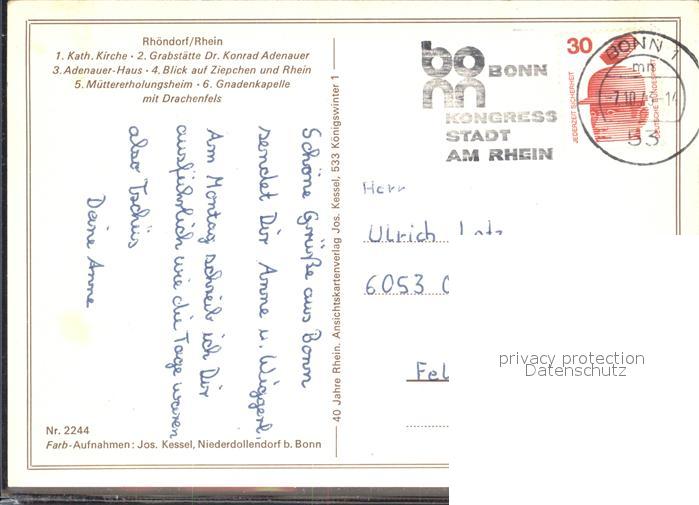 Rhöndorf/Rhein
1. Kath. Kirche · 2. Grabstätte Dr. Konrad Adenauer
3. Adenauer-Haus · 4. Blick auf Ziepchen und Rhein
5. Müttererholungsheim · 6. Gnadenkapelle
mit Drachenfels
Schöne Grüße aus Bonn
sendet Dir Anne u. Wiggerl.
Am Montag schreib ich Dir
ausführlich wie die Tage waren
also Tschüs
Deine Anne
Nr. 2244
Farb-Aufnahmen: Jos. Kessel, Niederdollendorf b. Bonn
40 Jahre Rhein. Ansichtskartenverlag Jos. Kessel, 533 Königswinter 1
bonn BONN
KONGRESS
STADT
AM RHEIN
30
JEDERZEIT SICHERHEIT
DEUTSCHE BUNDESPOST
BONN 1
mn
53
Herr
Ulrich
6053
Fel
privacy protection
Datenschutz